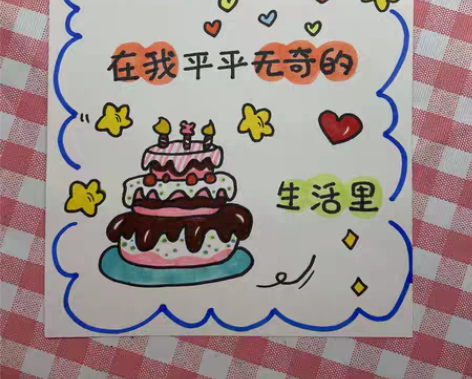 在我平平无奇的
生活里